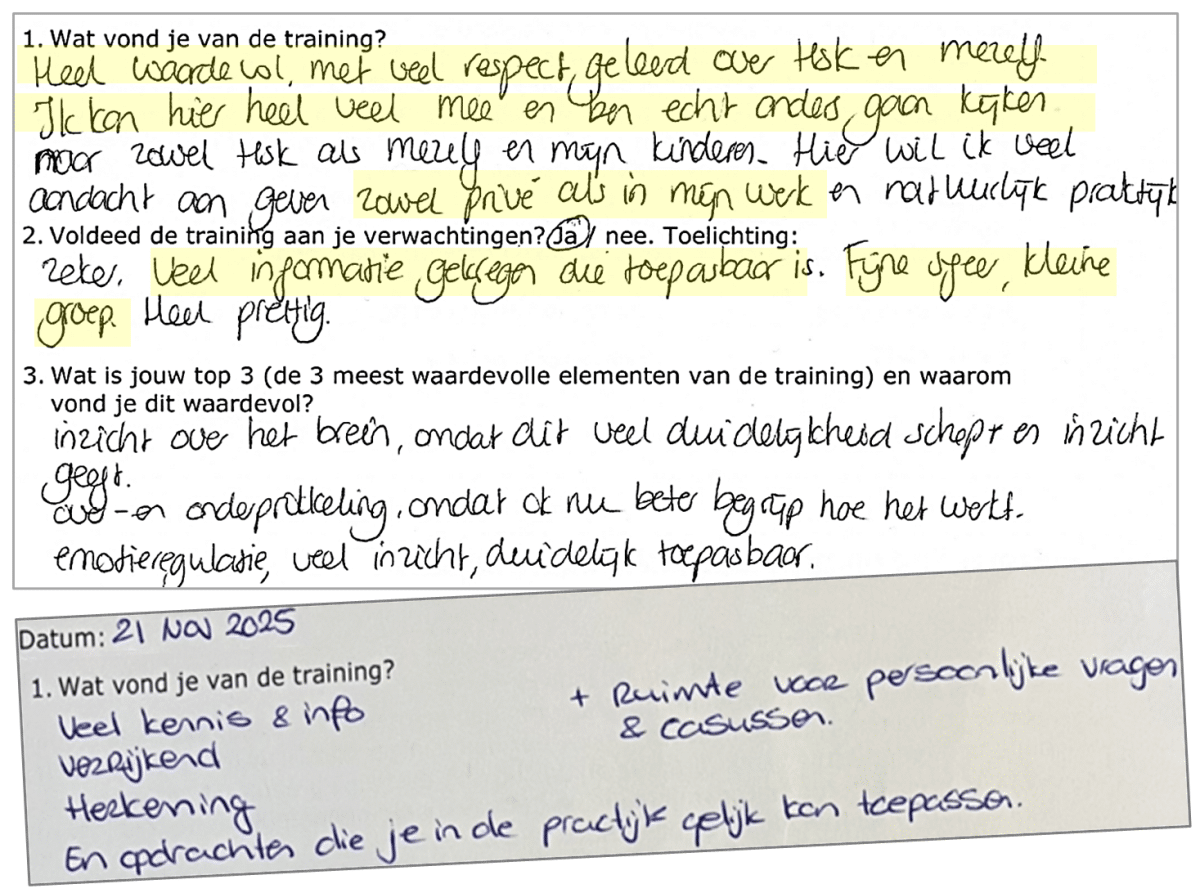 1. Wat vond je van de training?
Heel waardevol, met veel respect, geleerd over HSK en mezelf.
Ik kan hier heel veel mee en ben echt anders gaan kijken
naar zowel HSK als mezelf en mijn kinderen. Hier wil ik veel
aandacht aan geven zowel privé als in mijn werk en natuurlijk praktijk
2. Voldeed de training aan je verwachtingen? Ja / nee. Toelichting:
zeker. Veel informatie gekregen die toepasbaar is. Fijne sfeer, kleine
groep. Heel prettig.
3. Wat is jouw top 3 (de 3 meest waardevolle elementen van de training) en waarom
vond je dit waardevol?
inzicht over het brein, omdat dit veel duidelijkheid schept en inzicht
geeft.
over-en onderprikkeling, omdat ik nu beter begrijp hoe het werkt.
emotieregulatie, veel inzicht, duidelijk toepasbaar.
Datum: 21 NOV 2025
1. Wat vond je van de training?
Veel kennis & info
verrijkend
Herkenning
En opdrachten die je in de practijk gelijk kan toepassen.
+ Ruimte voor persoonlijke vragen
& casussen.